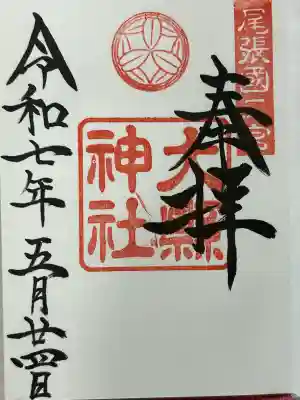 尾張國二宮
奉拝
大縣
神社
令和七年五月廿四日